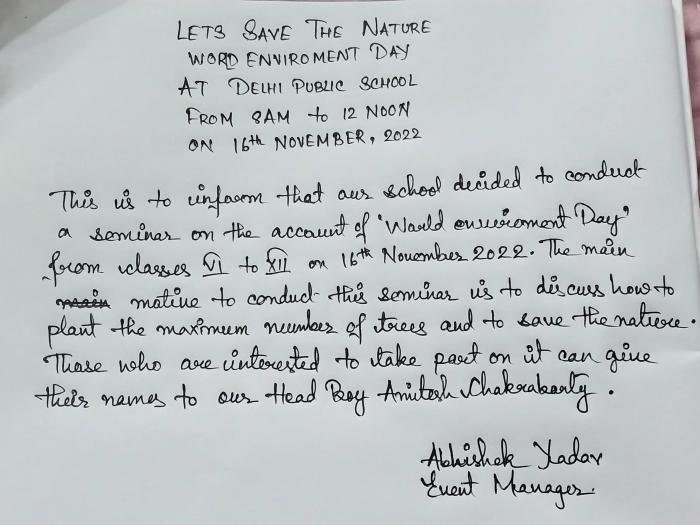 LETS SAVE THE NATURE
WORD ENVIROMENT DAY
AT DELHI PUBLIC SCHOOL
FROM 8AM to 12 NOON
ON 16th NOVEMBER, 2022
This is to inform that our school decided to conduct
a seminar on the account of 'World enviroment Day'
from classes VI to XII on 16th November 2022. The main
main motive to conduct this seminar is to discuss how to
plant the maximum number of trees and to save the nature.
Those who are interested to take part on it can give
their names to our Head Boy Amitesh Chakrabarty.
Abhishek Yadav
Event Manager.